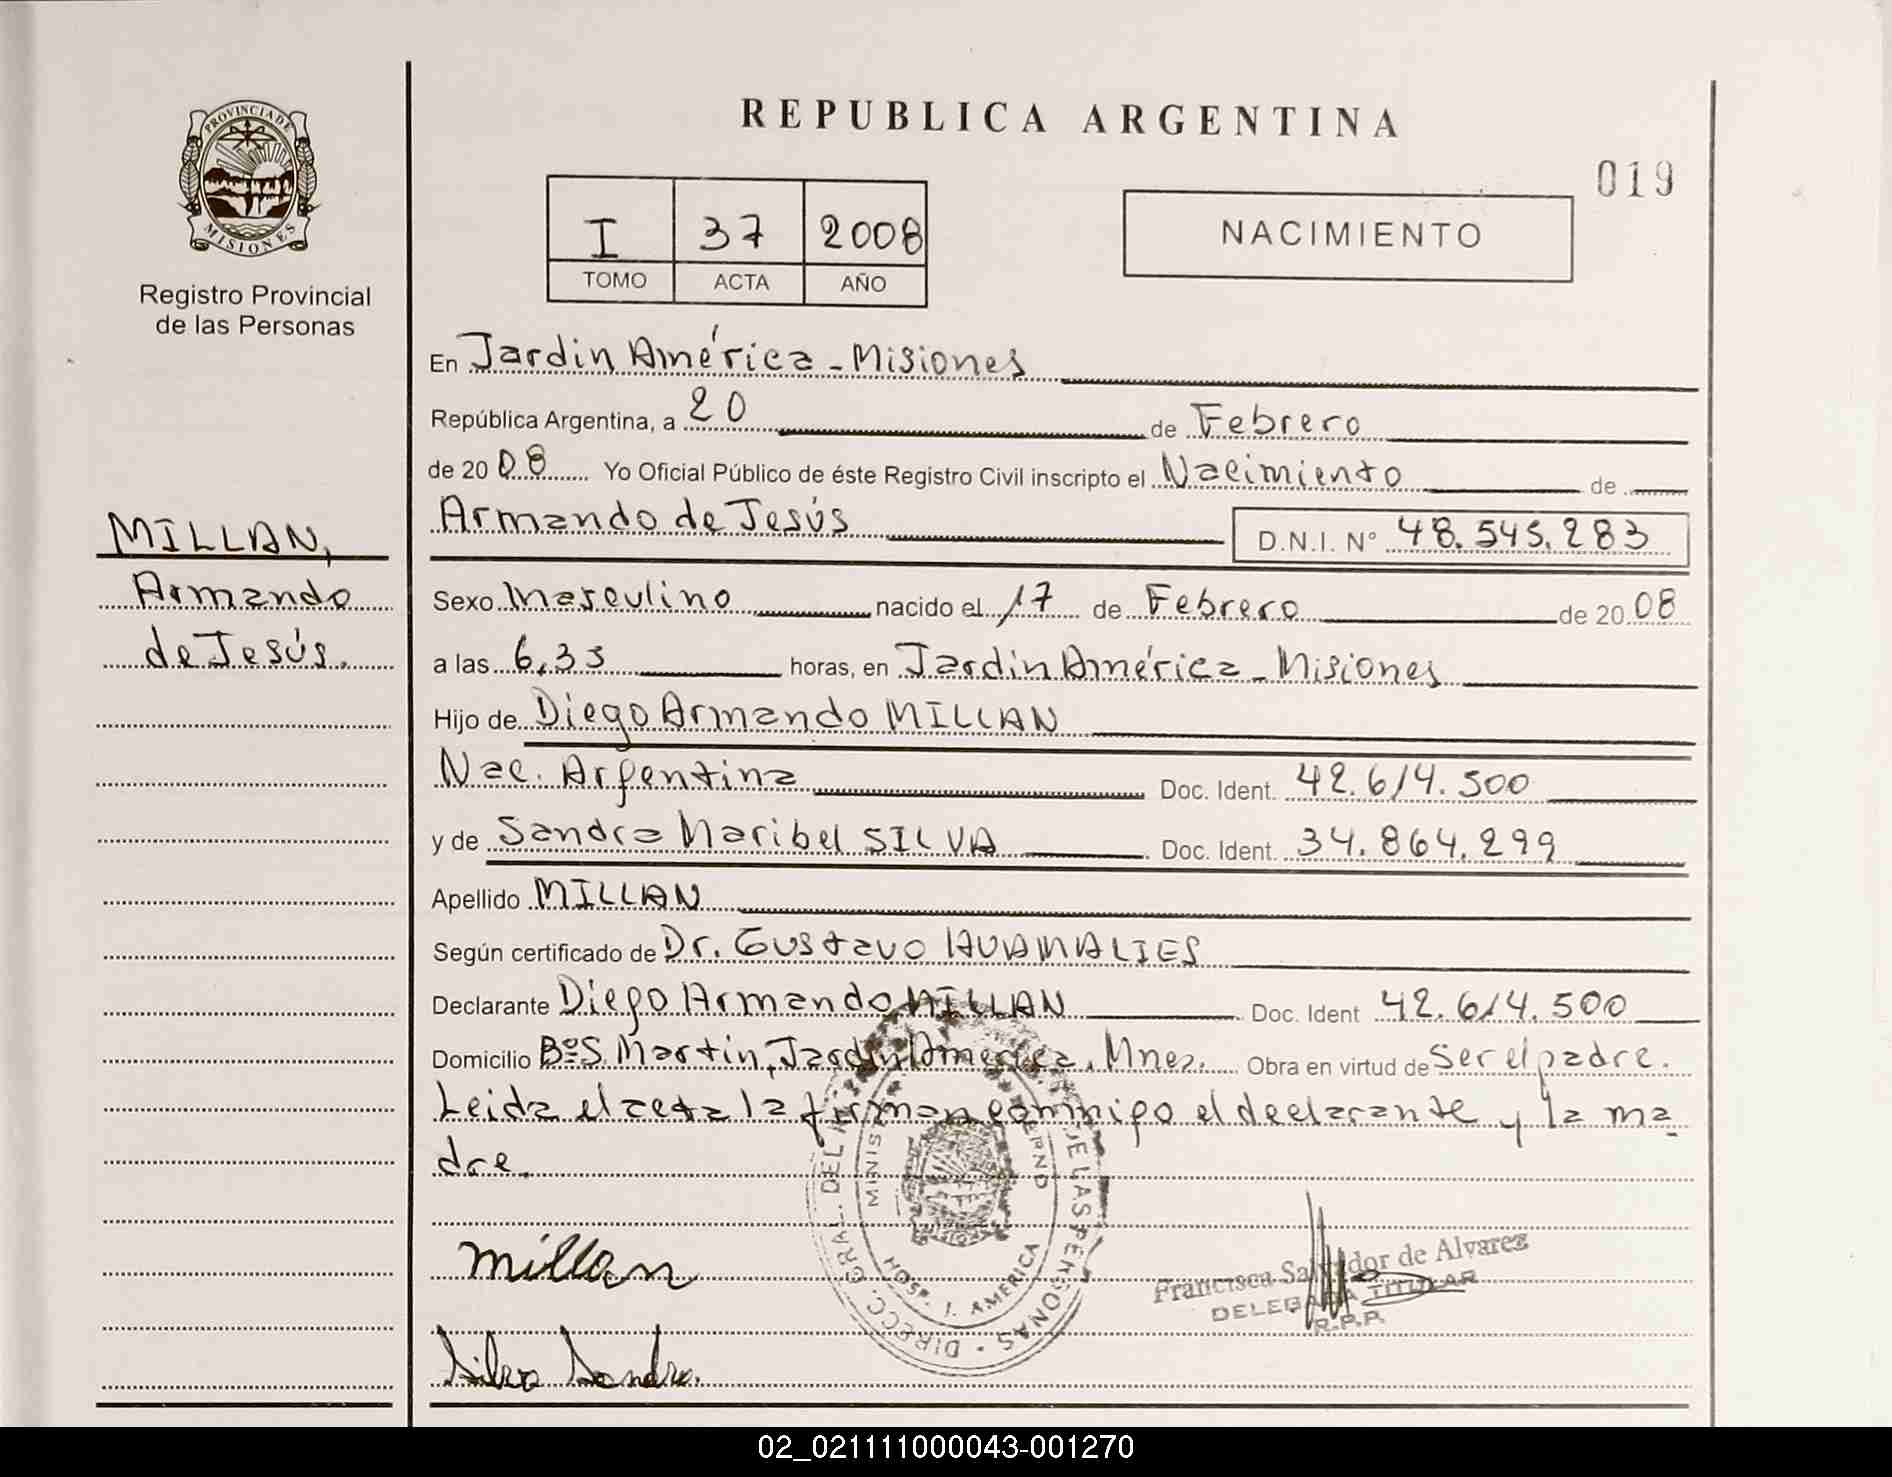 REPUBLICA ARGENTINA
019
PROVINCIA DE
MISIONES
Registro Provincial
de las Personas
I 37 2008
TOMO ACTA AÑO
NACIMIENTO
En Jardin América - Misiones
República Argentina, a 20 de Febrero
de 20 08 Yo Oficial Público de éste Registro Civil inscripto el Nacimiento de
Armando de Jesús D.N.I. N° 48.545.283
MILLAN,
Armando
de Jesús.
Sexo Masculino nacido el 17 de Febrero de 20 08
a las 6,35 horas, en Jardin América - Misiones
Hijo de Diego Armando MILLAN
Nac. Argentina Doc. Ident. 42.614.500
y de Sandra Maribel SILVA Doc. Ident. 34.864.299
Apellido MILLAN
Según certificado de Dr. Gustavo HUAMALIES
Declarante Diego Armando MILLAN Doc. Ident 42.614.500
Domicilio BºS. Martin, Jardin América, Mnes. Obra en virtud de Ser el padre.
Leida el acta la firman conmigo el declarante y la ma
dre.
DIRECC. GRAL. DEL DE LAS PERSONAS
HOSP. J. AMERICA
millan
Francisca Salvador de Alvarez
DELEGADA TITULAR
R.P.P.
Silva Sandra.
02_021111000043-001270